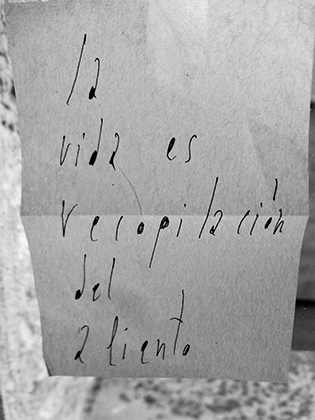 la
vida es
recopilación
del
aliento